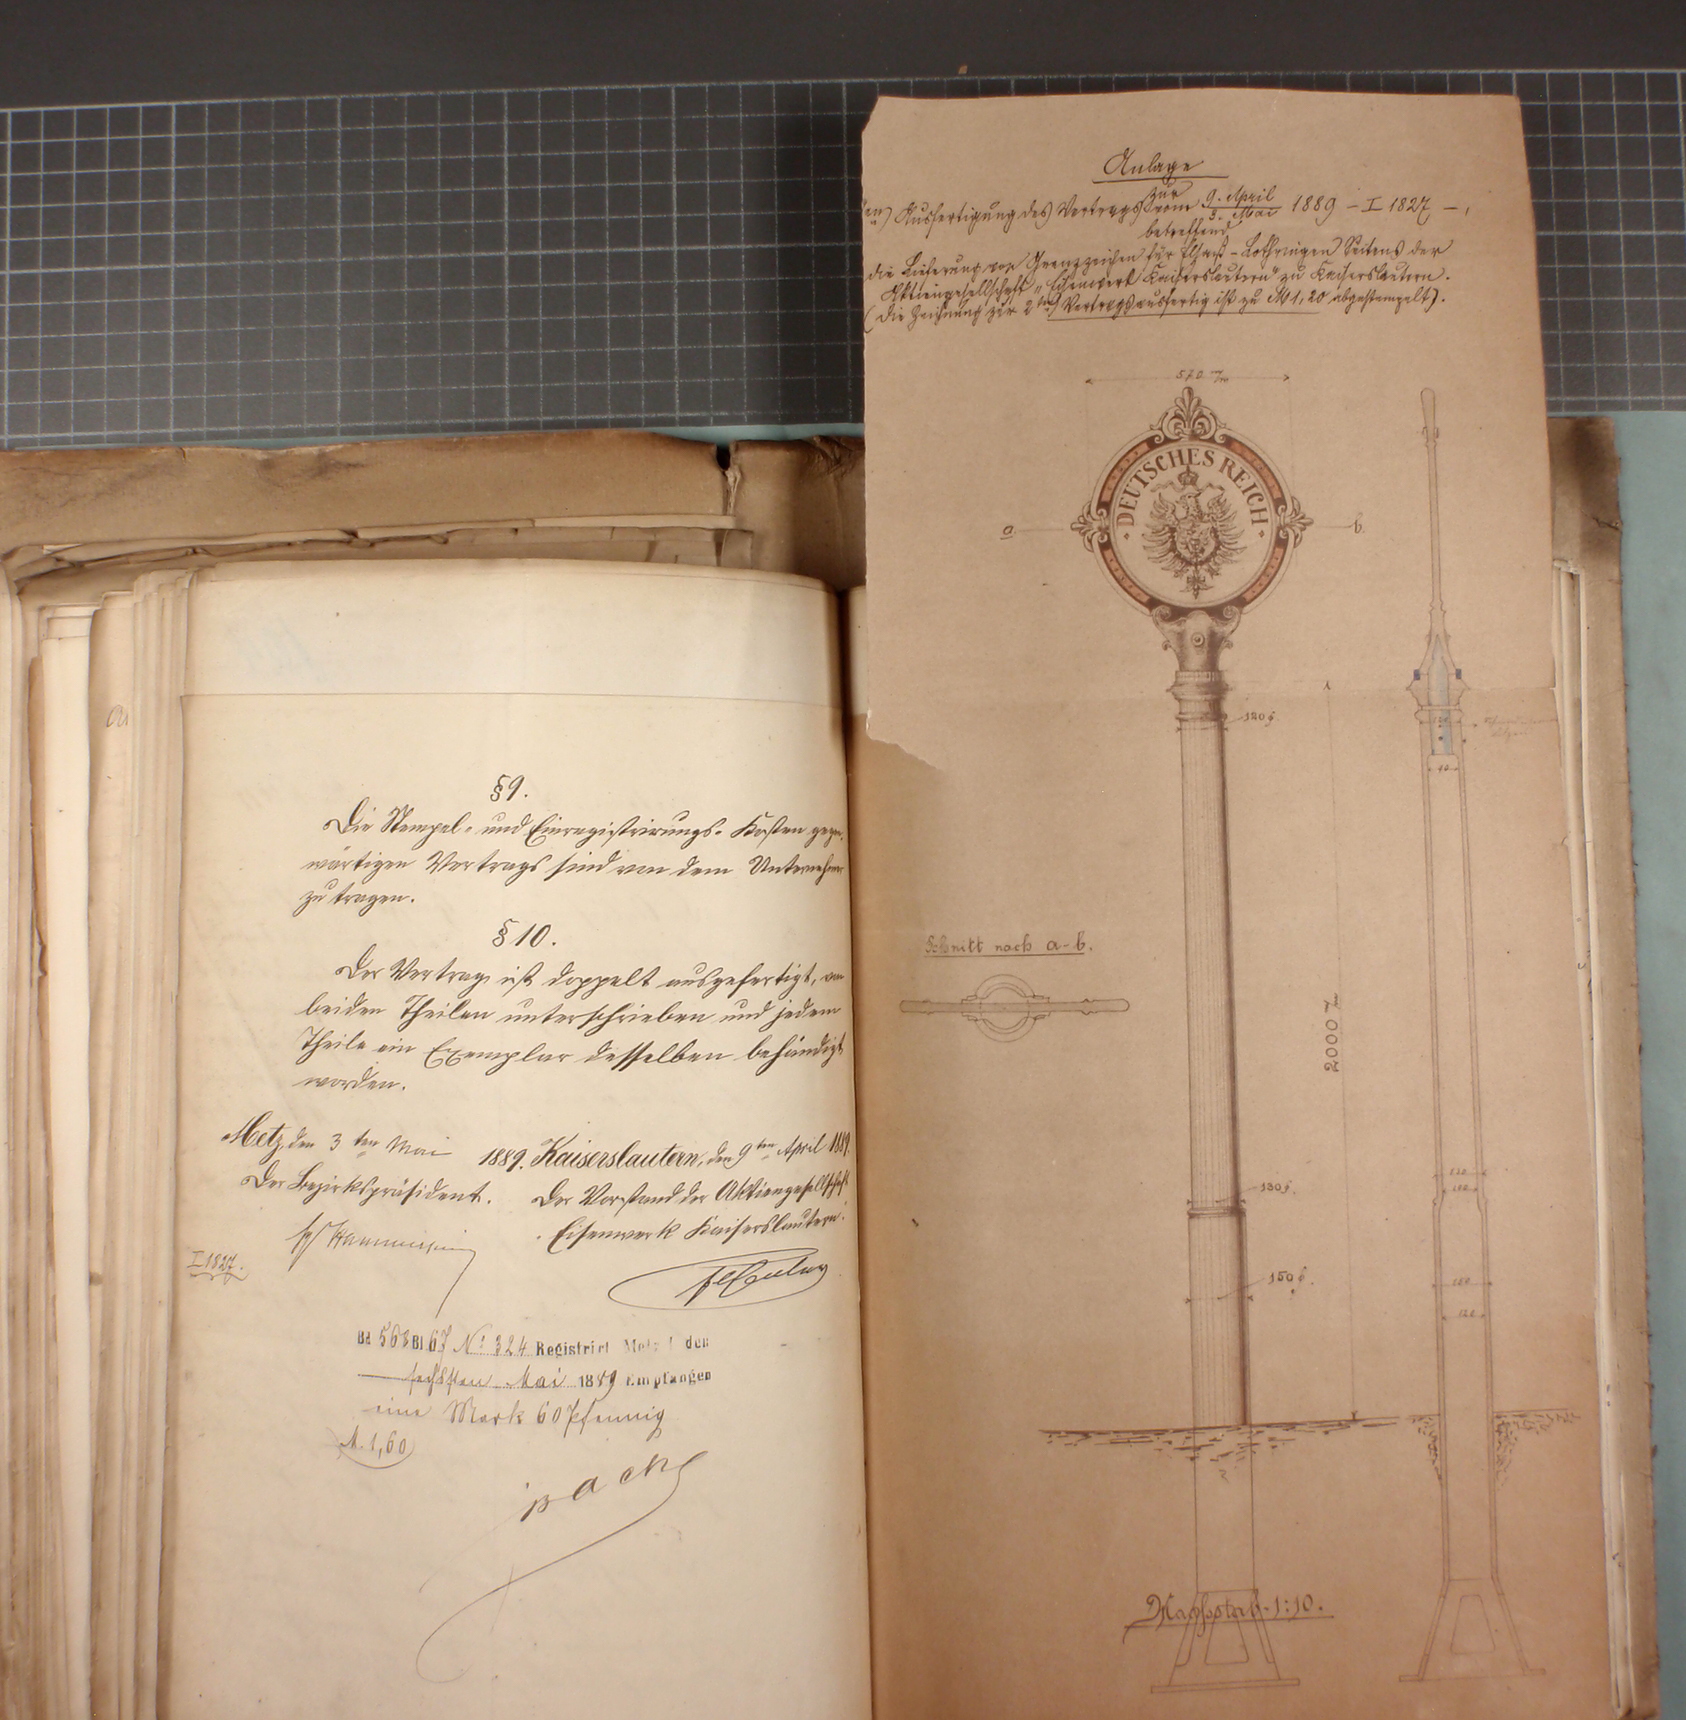 § 9.
Die Stempel- und Einregistrirungs-Kosten gegen-
wärtigen Vertrags sind von dem Unternehmer
zu tragen.
§ 10.
Der Vertrag ist doppelt ausgefertigt, von
beiden Theilen unterschrieben und jedem
Theile ein Exemplar desselben behändigt
worden.
Metz, den 3ten Mai 1889.
Der Bezirkspräsident.
I 1827.
Kaiserslautern, den 9ten April 1889.
Der Vorstand der Aktiengesellschaft
Eisenwerk Kaiserslautern.
Bd 568 Bl 67 No 324 Registrirt Metz den
sechsten Mai 1889 Empfangen
eine Mark 60 Pfennig
M. 1,60
Anlage
zur
Ausfertigung des Vertrags vom 9. April
3. Mai 1889 – I 1827 –,
betreffend
die Lieferung von Grenzzeichen für Elsaß-Lothringen Seitens der
Aktiengesellschaft „Eisenwerk Kaiserslautern" zu Kaiserslautern.
(Die Zeichnung zur 2ten Vertragsausfertig. ist zu M 1,20 abgestempelt).
570 m/m
DEUTSCHES REICH
a
b
120
90
Schnitt nach a-b.
2000 m/m
130
150
120
Maßstab 1:10.